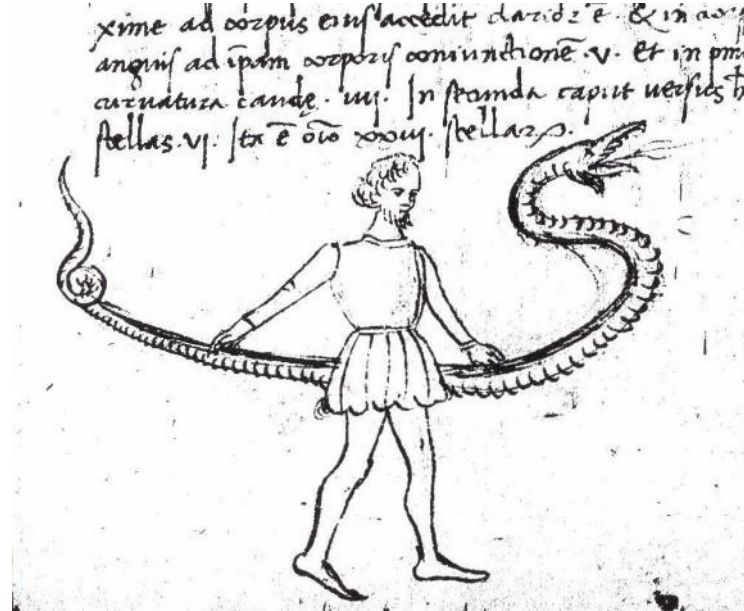 xime ad corpus eius accedit clarior ē. & in corp
anguis ad ip̄am corporis coniunctionē .v. Et in pm
curuatura caudę . iiij. In secunda caput uersus h
stellas .vj. Ita ē oīo xxiij. stellarꝝ.